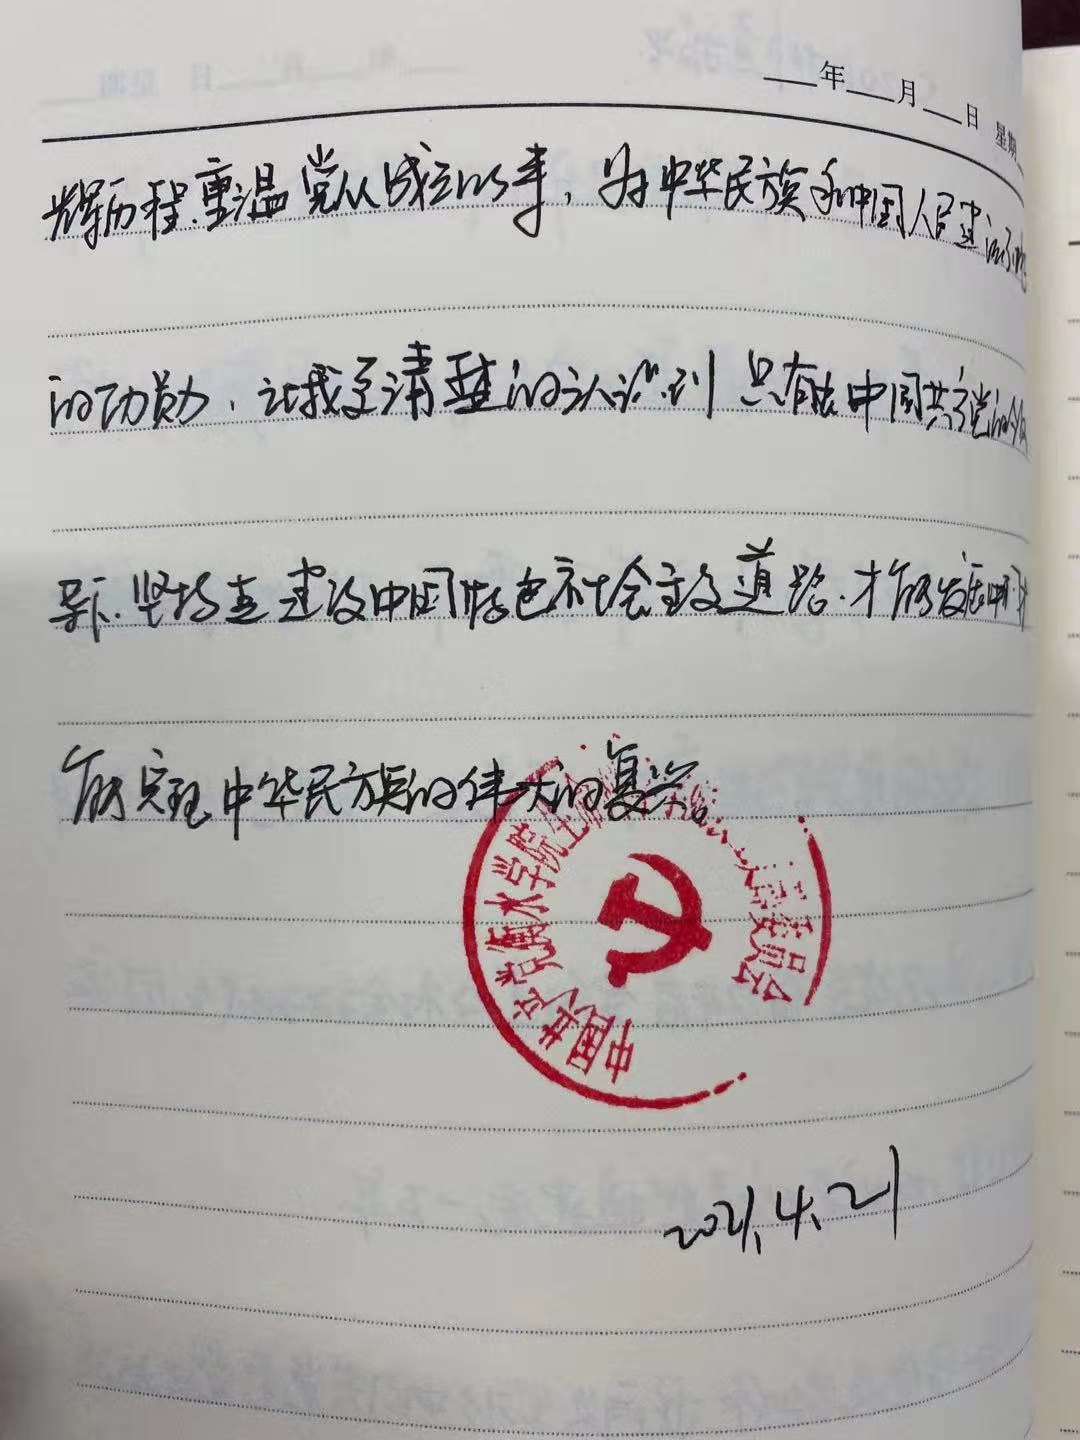 年 月 日 星期
辉历程,重温党从成立以来,为中华民族和中国人民建立的
的功勋,让我更清楚的认识到 只有在中国共产党的领
导下,坚持走建设中国特色社会主义道路,才能发展中国,才
能实现中华民族的伟大的复兴。
中国共产党衡水学院生 委员会
2021.4.21